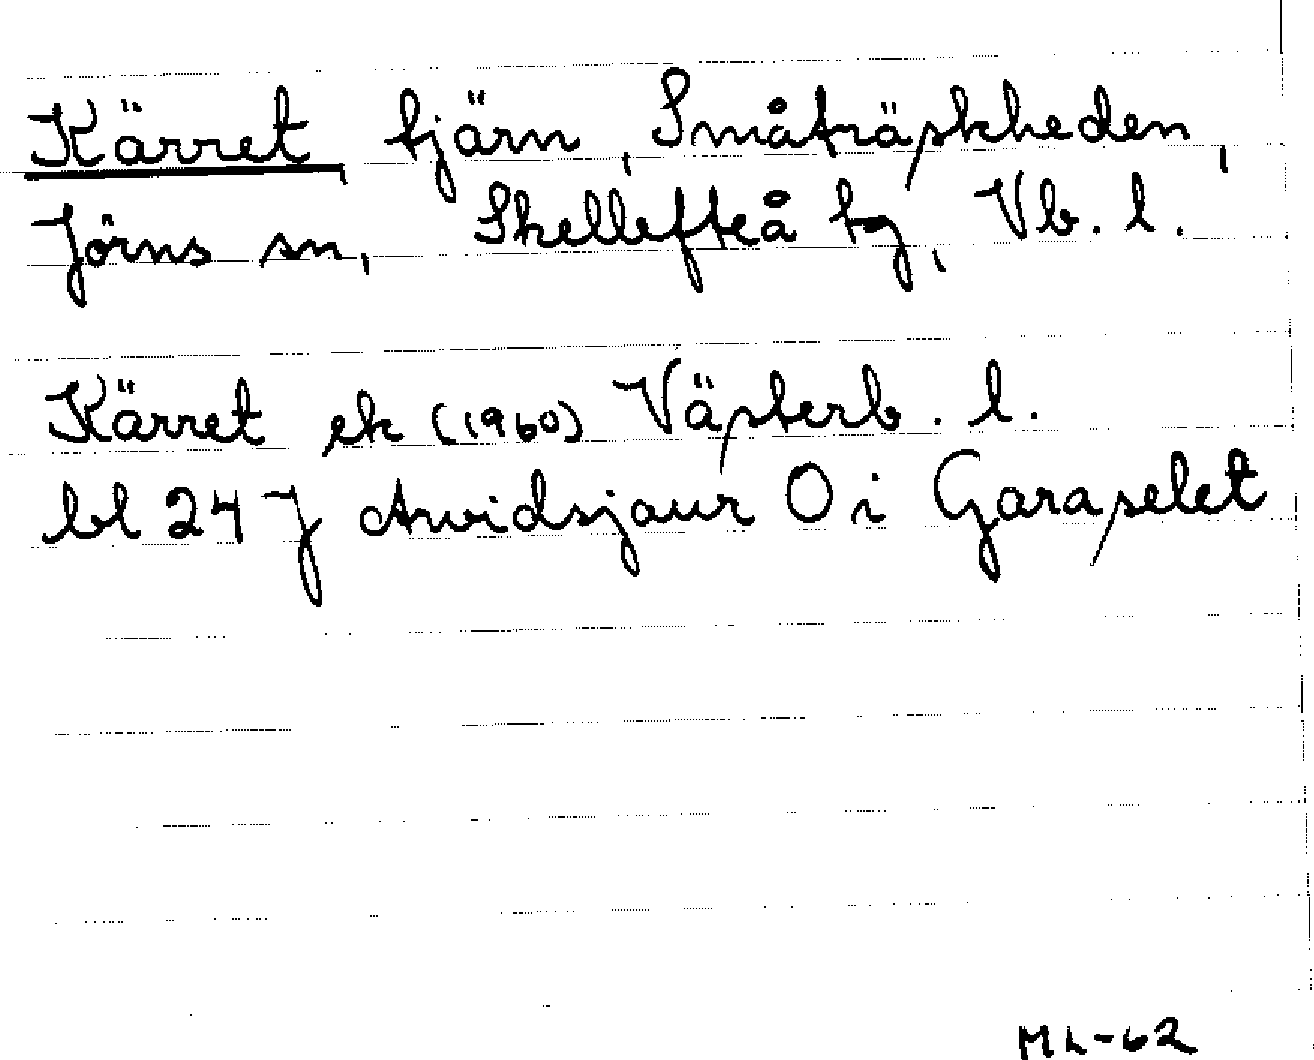 Kärret, tjärn, Småträskheden,
Jörns sn, Skellefteå tg, Vb. l.
Kärret ek (1960) Västerb. l.
bl 24 J Arvidsjaur O i Garaselet
ML-62